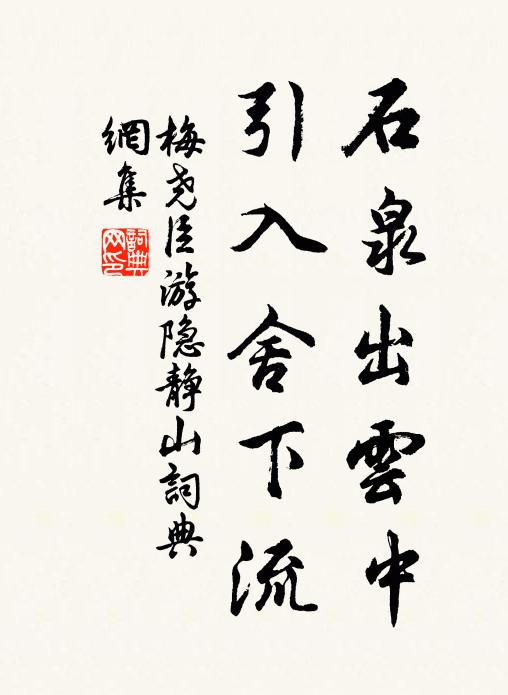 石泉出雲中
引入舍下流
梅尧臣游隐静山詞典
網集
詞典
网印